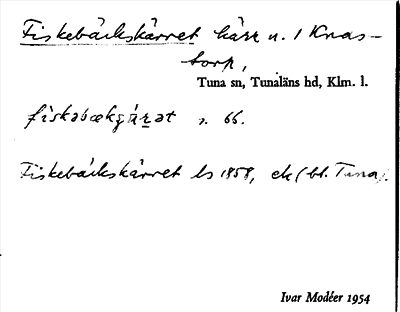 Fiskebäckskärret kärr n. 1 Knas-
torp,
Tuna sn, Tunaläns hd, Klm. l.
s. 66.
Fiskebäckskärret ls 1858, ek (bl. Tuna).
Ivar Modéer 1954